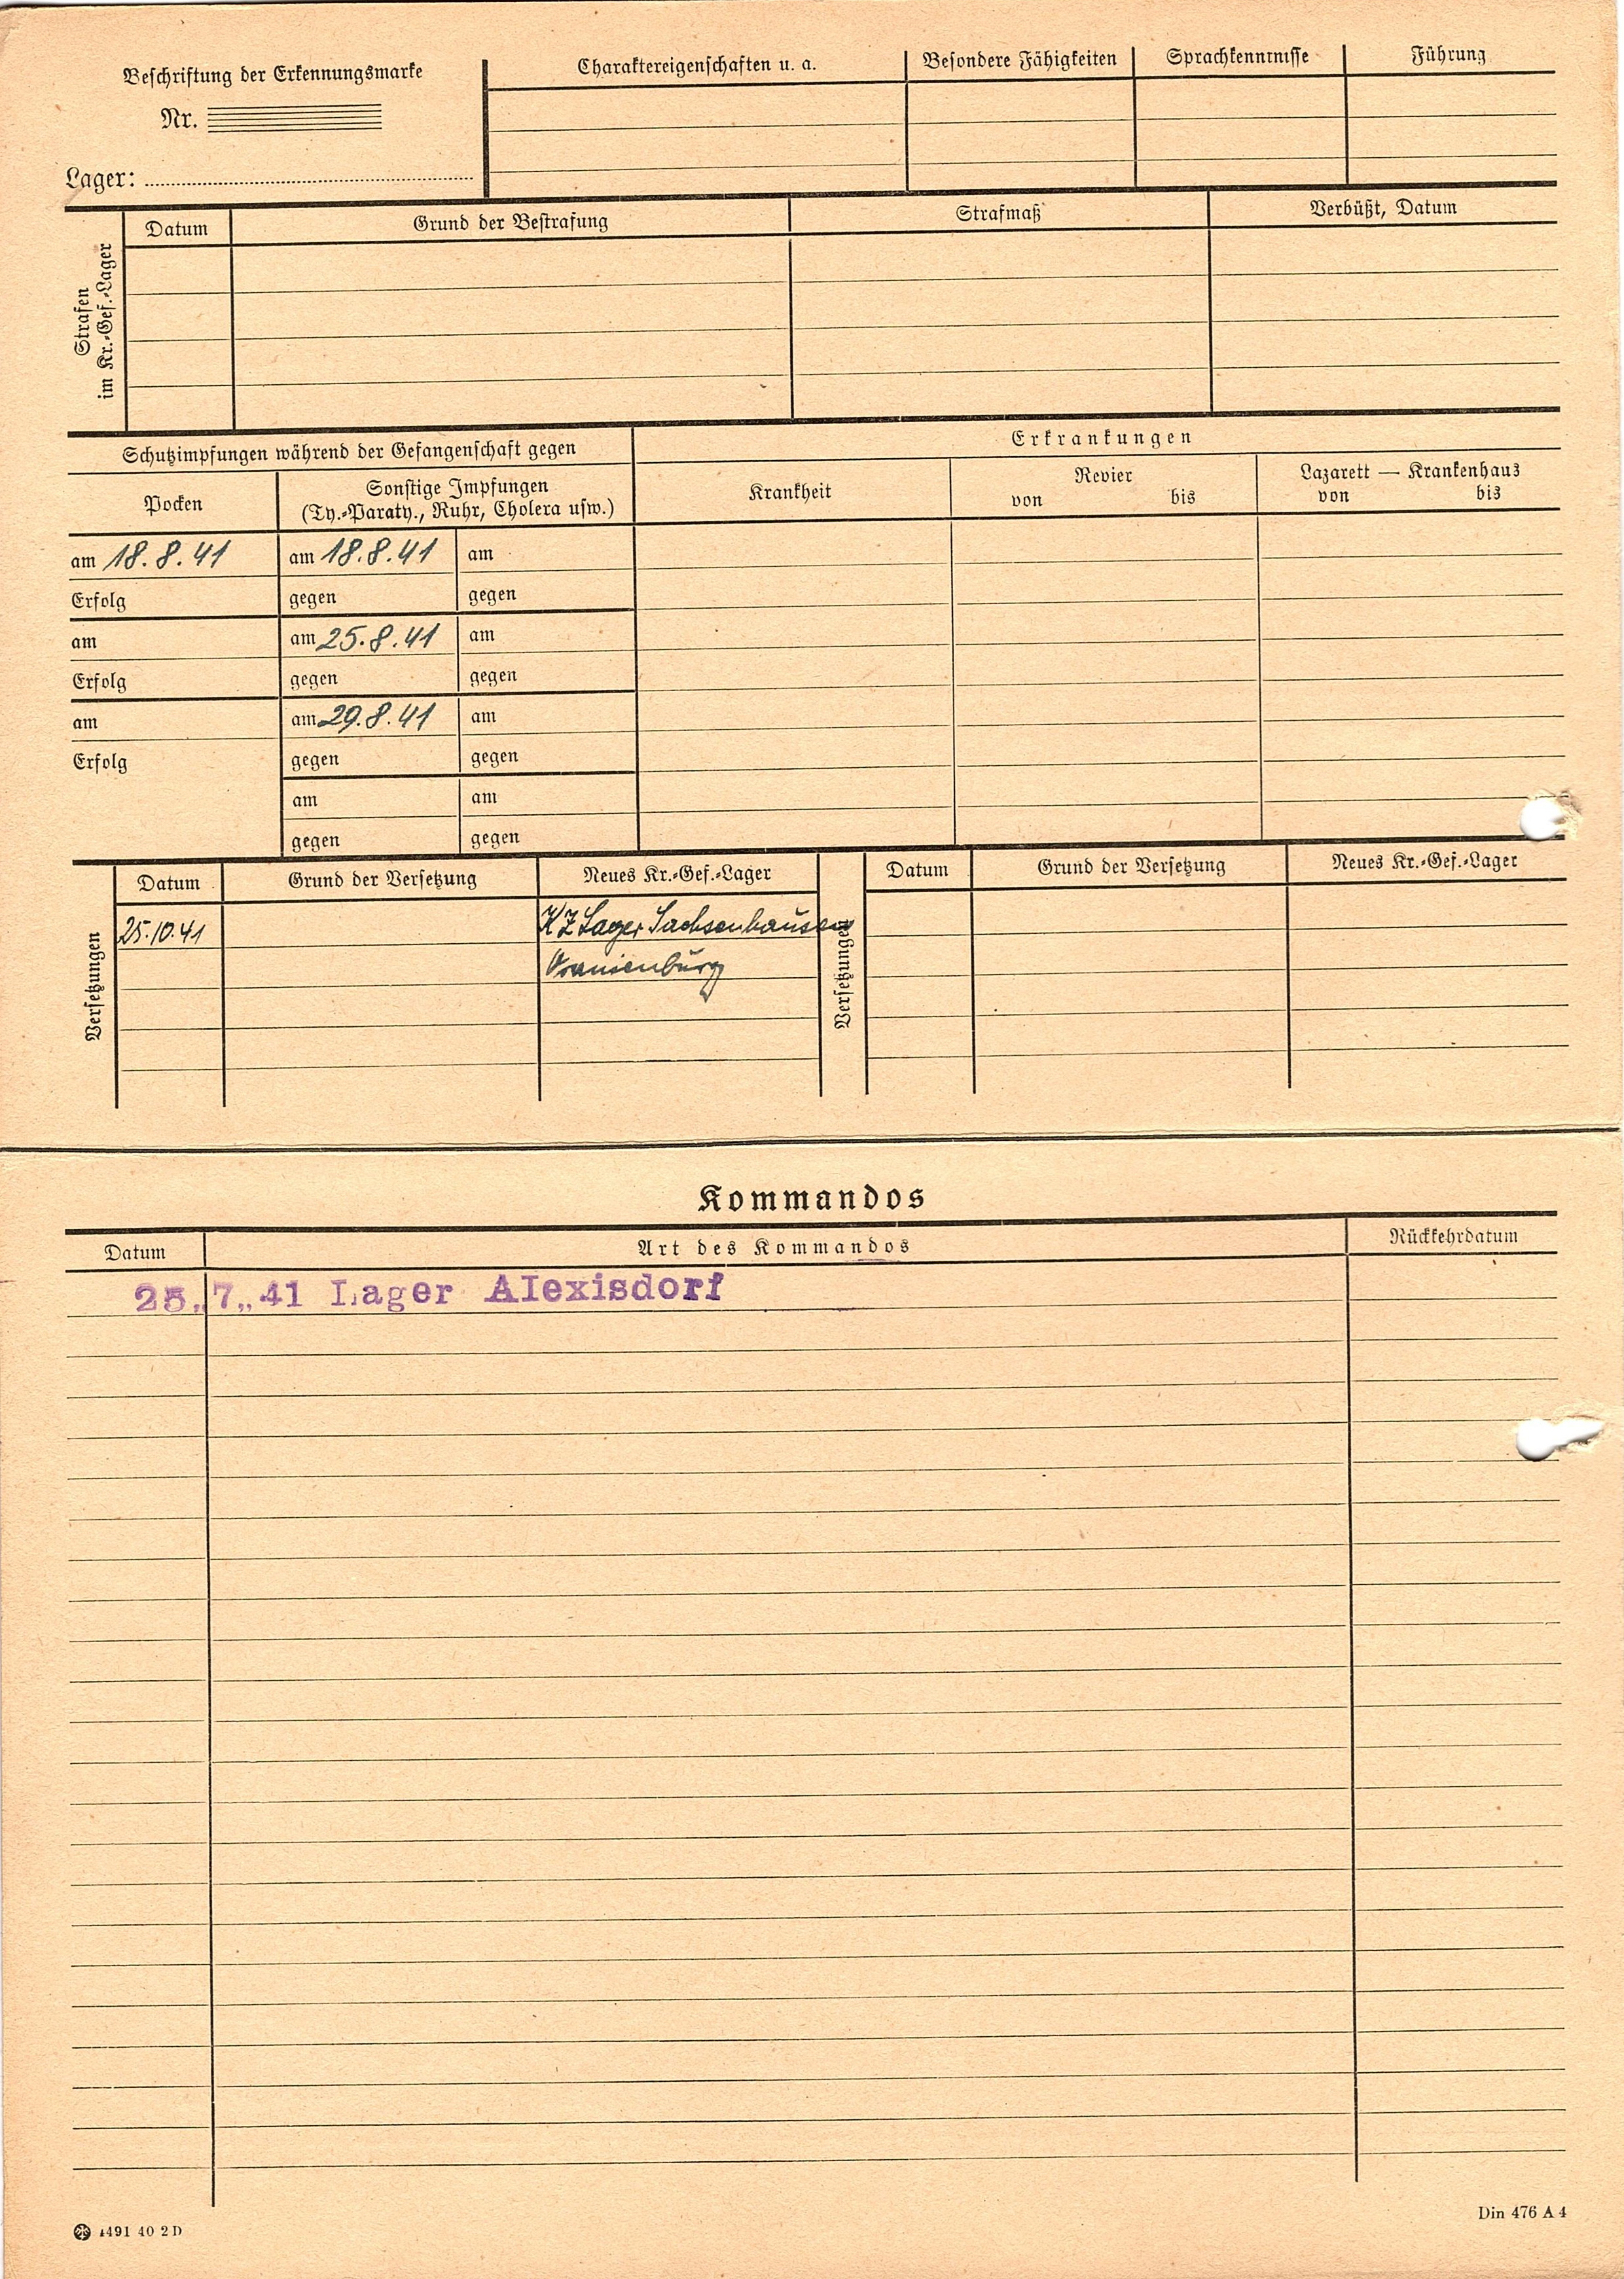 Beschriftung der Erkennungsmarke
Nr.
Lager:
Charaktereigenschaften u. a.
Besondere Fähigkeiten
Sprachkenntnisse
Führung
Strafen
im Kr.-Gef.-Lager
Datum
Grund der Bestrafung
Strafmaß
Verbüßt, Datum
Schutzimpfungen während der Gefangenschaft gegen
Erkrankungen
Pocken
Sonstige Impfungen
(Ty.-Paraty., Ruhr, Cholera usw.)
Krankheit
Revier
von bis
Lazarett — Krankenhaus
von bis
am 18.8.41 am 18.8.41 am
Erfolg gegen gegen
am am 25.8.41 am
Erfolg gegen gegen
am am 29.8.41 am
Erfolg gegen gegen
am am
gegen gegen
Versetzungen
Datum Grund der Versetzung Neues Kr.-Gef.-Lager
25.10.41 KZ Lager Sachsenhausen
Oranienburg
Versetzungen
Datum Grund der Versetzung Neues Kr.-Gef.-Lager
Kommandos
Datum Art des Kommandos Rückkehrdatum
25.7.41 Lager Alexisdorf
1491 40 2 D
Din 476 A 4